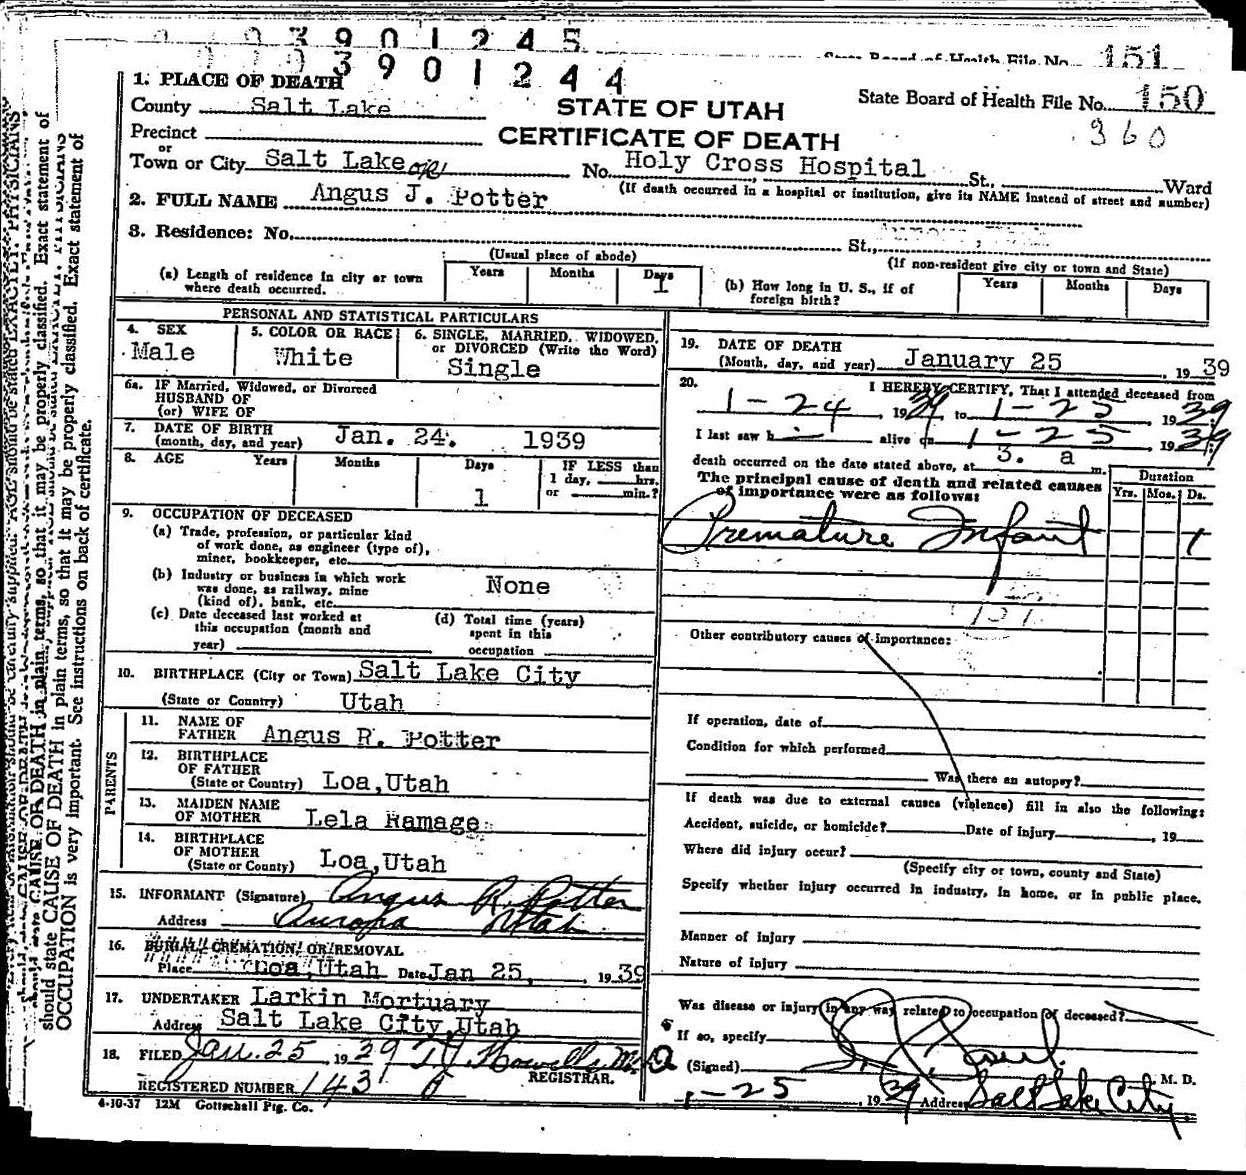 3901245
State Board of Health File No. 151
3901244
1. PLACE OF DEATH
County Salt Lake
STATE OF UTAH
State Board of Health File No. 150
CERTIFICATE OF DEATH
360
Precinct
or
Town or City Salt Lake No. Holy Cross Hospital St., Ward
(If death occurred in a hospital or institution, give its NAME instead of street and number)
2. FULL NAME Angus J. Potter
3. Residence: No. St.,
(Usual place of abode)
(If non-resident give city or town and State)
(a) Length of residence in city or town where death occurred. Years Months Days 1
(b) How long in U. S., if of foreign birth? Years Months Days
PERSONAL AND STATISTICAL PARTICULARS
4. SEX Male
5. COLOR OR RACE White
6. SINGLE, MARRIED, WIDOWED, or DIVORCED (Write the Word) Single
6a. IF Married, Widowed, or Divorced
HUSBAND OF
(or) WIFE OF
7. DATE OF BIRTH
(month, day, and year) Jan. 24. 1939
8. AGE Years Months Days 1
IF LESS than
1 day, hrs.
or min.?
9. OCCUPATION OF DECEASED
(a) Trade, profession, or particular kind
of work done, as engineer (type of),
miner, bookkeeper, etc.
(b) Industry or business in which work
was done, as railway, mine
(kind of), bank, etc. None
(c) Date deceased last worked at
this occupation (month and
year)
(d) Total time (years)
spent in this
occupation
10. BIRTHPLACE (City or Town) Salt Lake City
(State or Country) Utah
PARENTS
11. NAME OF
FATHER Angus R. Potter
12. BIRTHPLACE
OF FATHER
(State or Country) Loa,Utah
13. MAIDEN NAME
OF MOTHER Lela Ramage
14. BIRTHPLACE
OF MOTHER
(State or County) Loa,Utah
15. INFORMANT (Signature) Angus R. Potter
Address Aurora Utah
16. BURIAL, CREMATION, OR REMOVAL
Place Loa,Utah Date Jan 25, 1939
17. UNDERTAKER Larkin Mortuary
Address Salt Lake City,Utah
18. FILED Jan. 25, 1939 T. J. Howells M.D.
REGISTRAR.
REGISTERED NUMBER 143
4-10-37 12M Gottschall Ptg. Co.
19. DATE OF DEATH
(Month, day, and year) January 25, 1939
20. I HEREBY CERTIFY, That I attended deceased from
1-24, 1939 to 1-25 1939
I last saw h alive on 1-25 1939
death occurred on the date stated above, at 3. a m.
The principal cause of death and related causes
of importance were as follows:
Duration
Yrs. Mos. Ds.
Premature Infant 1
Other contributory causes of importance:
If operation, date of
Condition for which performed
Was there an autopsy?
If death was due to external causes (violence) fill in also the following:
Accident, suicide, or homicide? Date of injury , 19
Where did injury occur?
(Specify city or town, county and State)
Specify whether injury occurred in industry, in home, or in public place.
Manner of Injury
Nature of injury
Was disease or injury in any way related to occupation of deceased?
If so, specify
(Signed) M. D.
1-25, 1939 Address Salt Lake City
should state CAUSE OF DEATH in plain terms, so that it may be properly classified. Exact statement of
OCCUPATION is very important. See instructions on back of certificate.